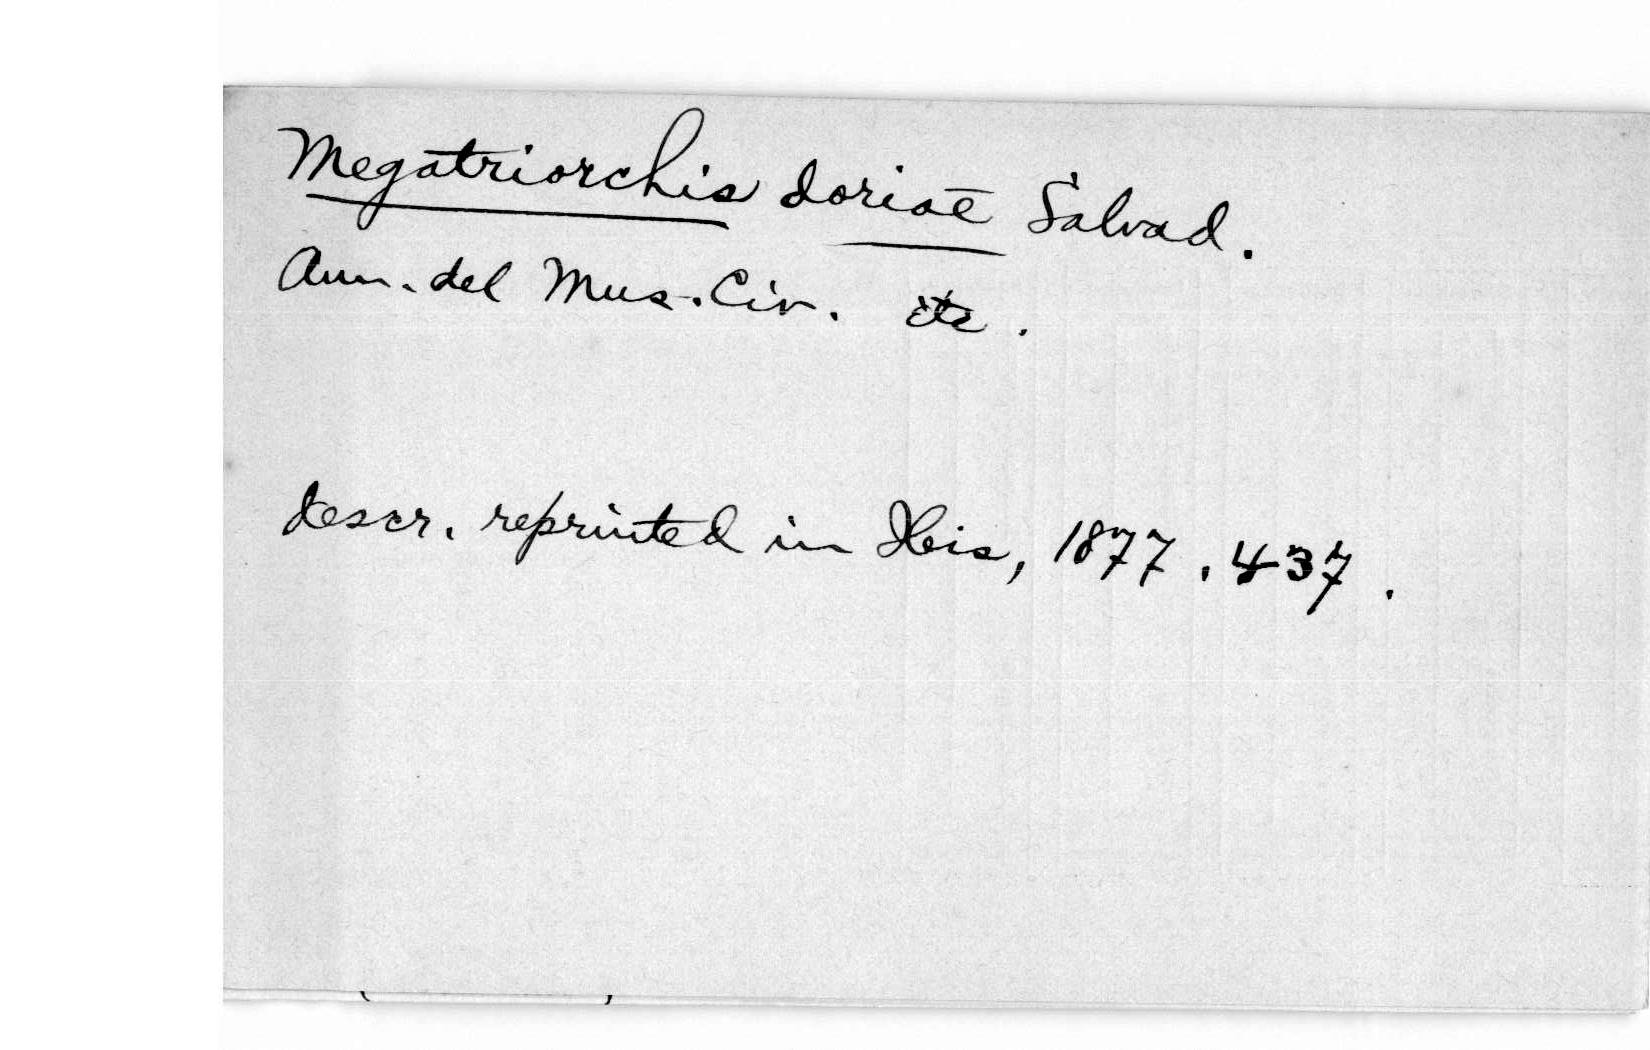 Megatriorchis doriae Salvad.
Ann. del Mus. Civ. etc.
descr. reprinted in Ibis, 1877. 437.